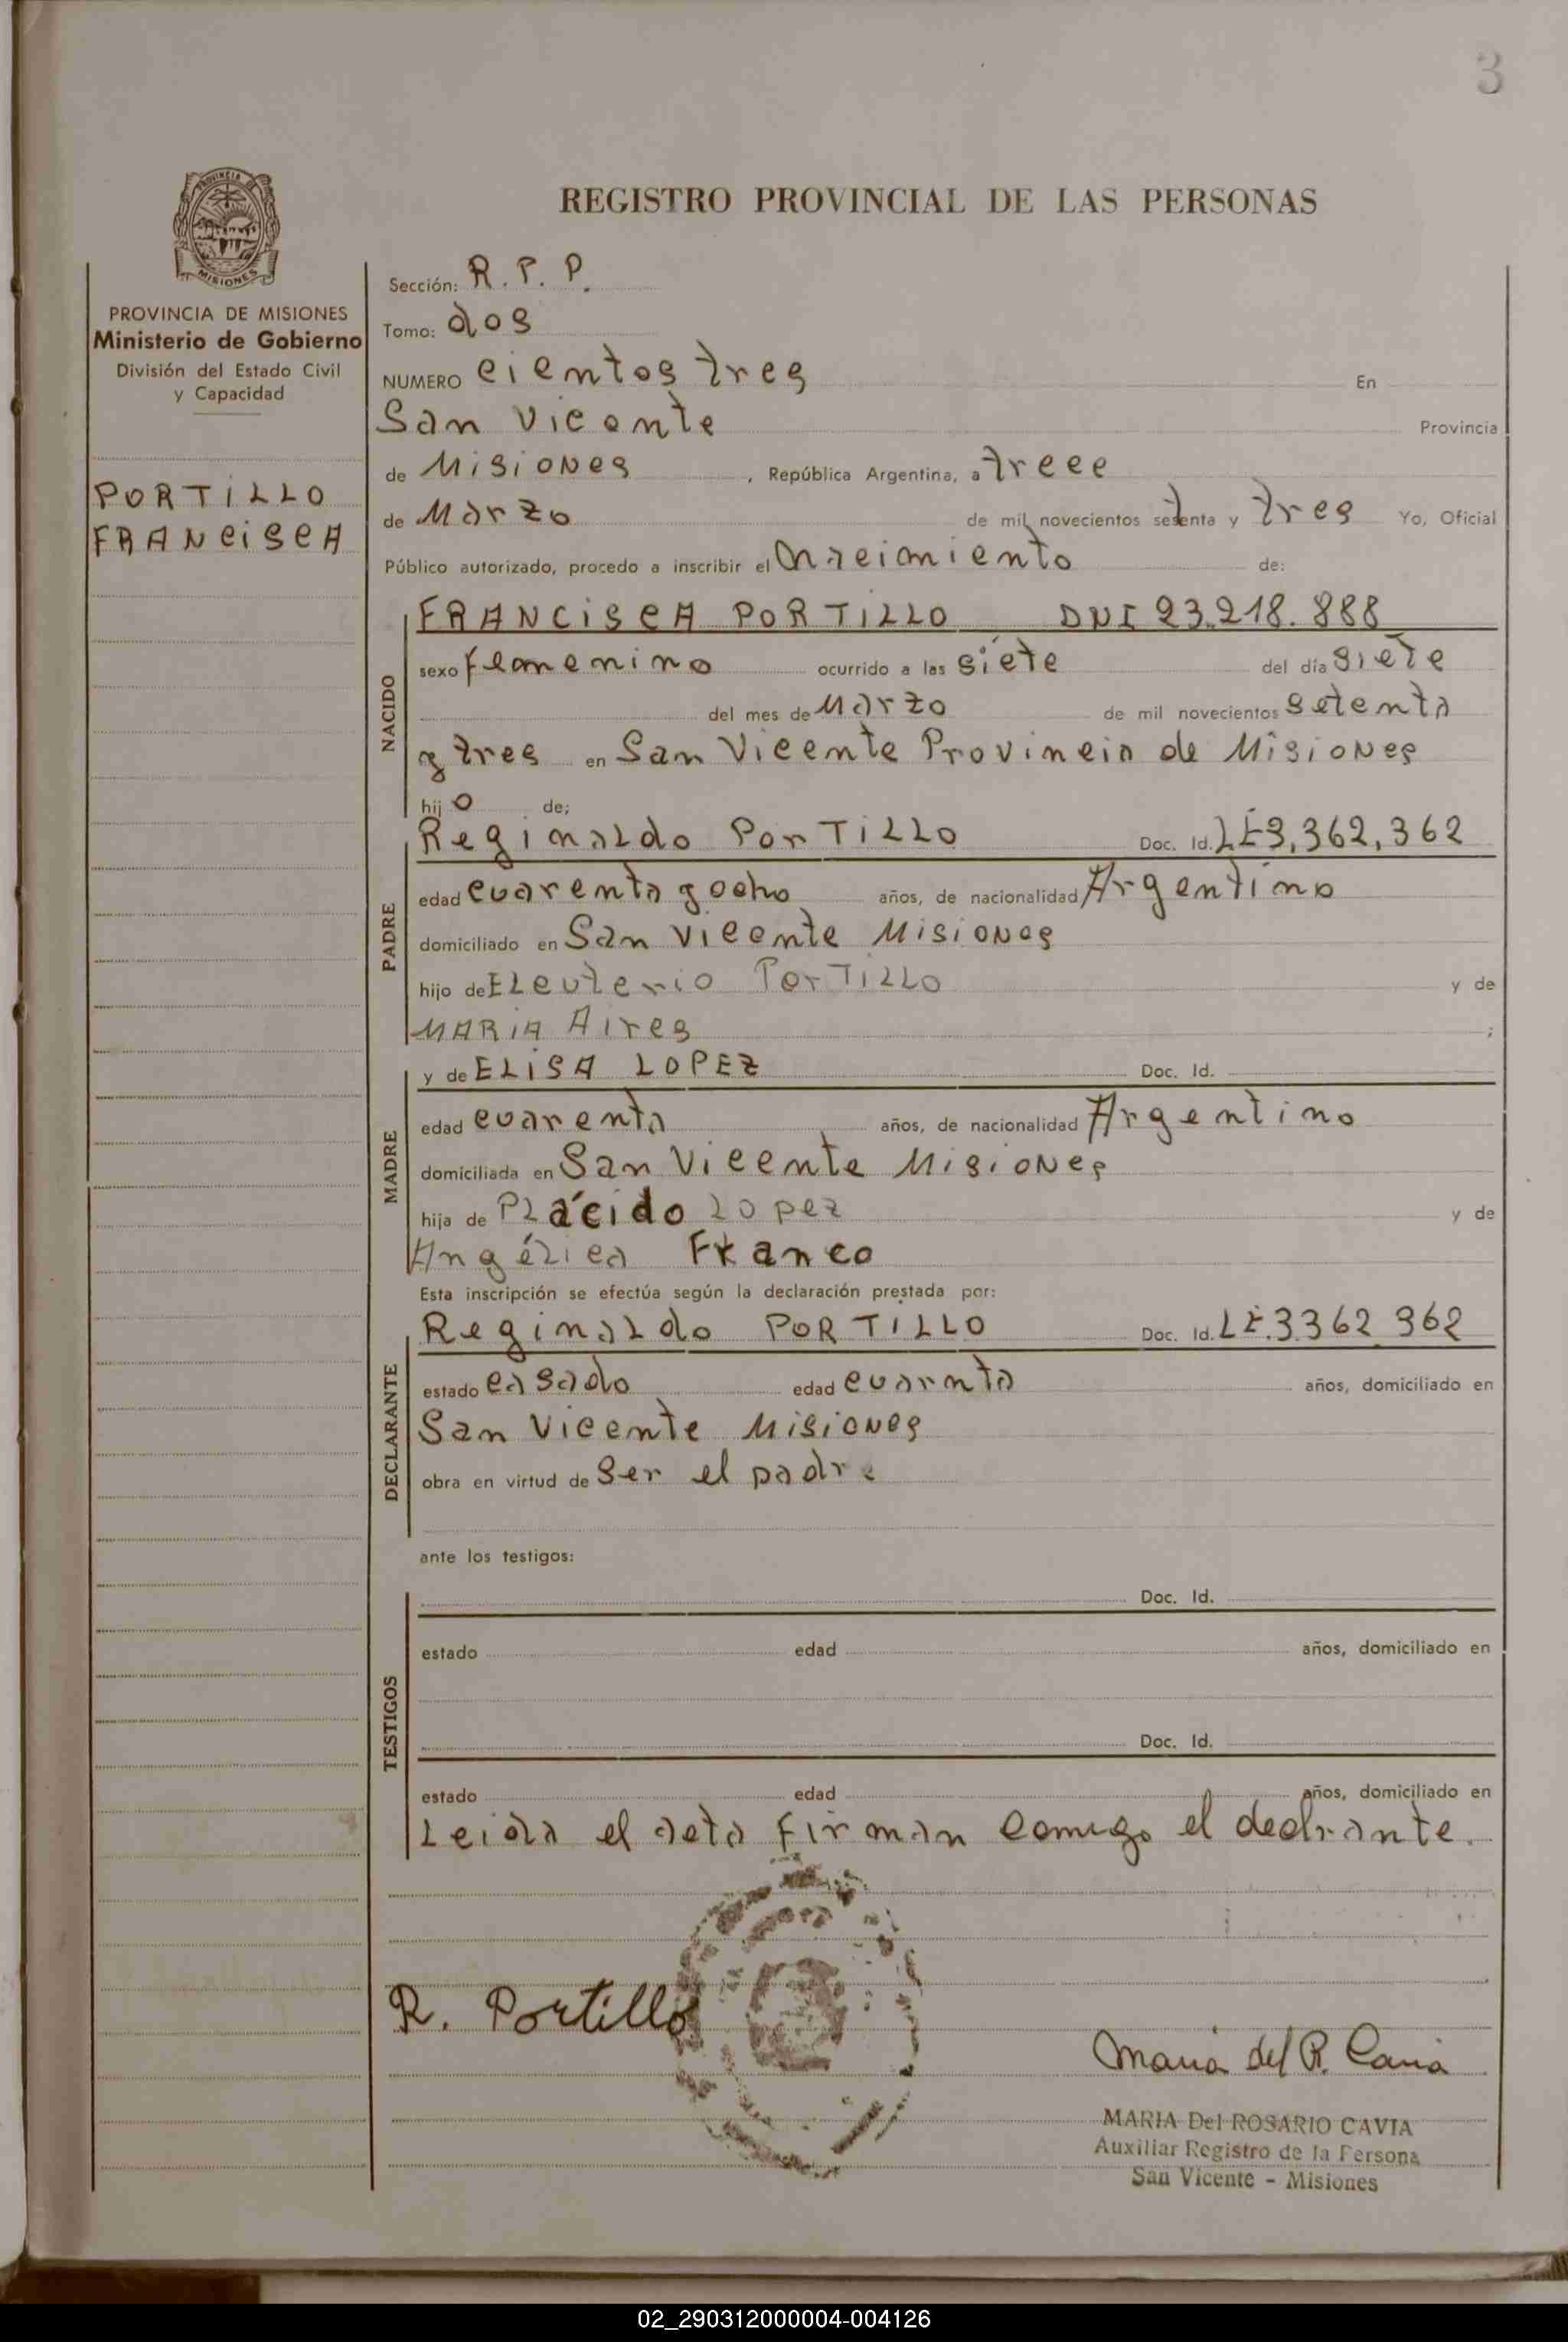 3
REGISTRO PROVINCIAL DE LAS PERSONAS
PROVINCIA DE MISIONES
Ministerio de Gobierno
División del Estado Civil
y Capacidad
PORTILLO
FRANCISCA
Sección: R. P. P.
Tomo: dos
NUMERO cientos tres En
San Vicente Provincia
de Misiones, República Argentina, a trece
de Marzo de mil novecientos setenta y tres Yo, Oficial
Público autorizado, procedo a inscribir el nacimiento de:
NACIDO
FRANCISCA PORTILLO DNI 23.218.888
sexo femenino ocurrido a las siete del día siete
del mes de Marzo de mil novecientos setenta
y tres en San Vicente Provincia de Misiones
hijo de;
PADRE
Reginaldo PORTILLO Doc. Id. LE 3,362,362
edad cuarenta y ocho años, de nacionalidad Argentino
domiciliado en San Vicente Misiones
hijo de Eleuterio PorTILLO y de
MARIA Aires ;
MADRE
y de ELISA LOPEZ Doc. Id.
edad cuarenta años, de nacionalidad Argentino
domiciliada en San Vicente Misiones
hija de Plácido Lopez y de
Angélica Franco
Esta inscripción se efectúa según la declaración prestada por:
DECLARANTE
Reginaldo PORTILLO Doc. Id. LE.3362 362
estado casado edad cuarnta años, domiciliado en
San Vicente Misiones
obra en virtud de Ser el padre
ante los testigos:
TESTIGOS
Doc. Id.
estado edad años, domiciliado en
Doc. Id.
estado edad años, domiciliado en
Leida el acta firman comigo el declrante.
R. Portillo
Maria del R. Cavia
MARIA Del ROSARIO CAVIA
Auxiliar Registro de la Persona
San Vicente - Misiones
02_290312000004-004126